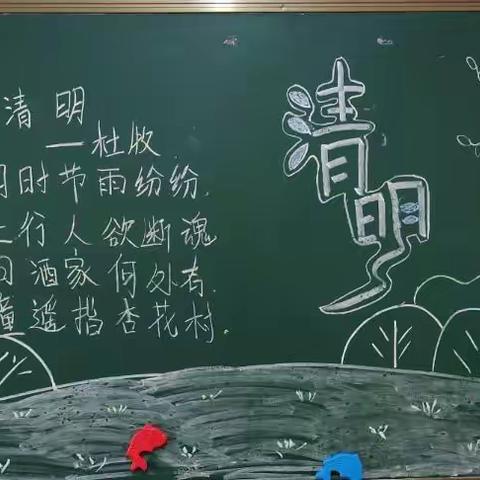 清 明
—杜牧
明时节雨纷纷.
上行人欲断魂
问酒家何处有.
童遥指杏花村.
清明